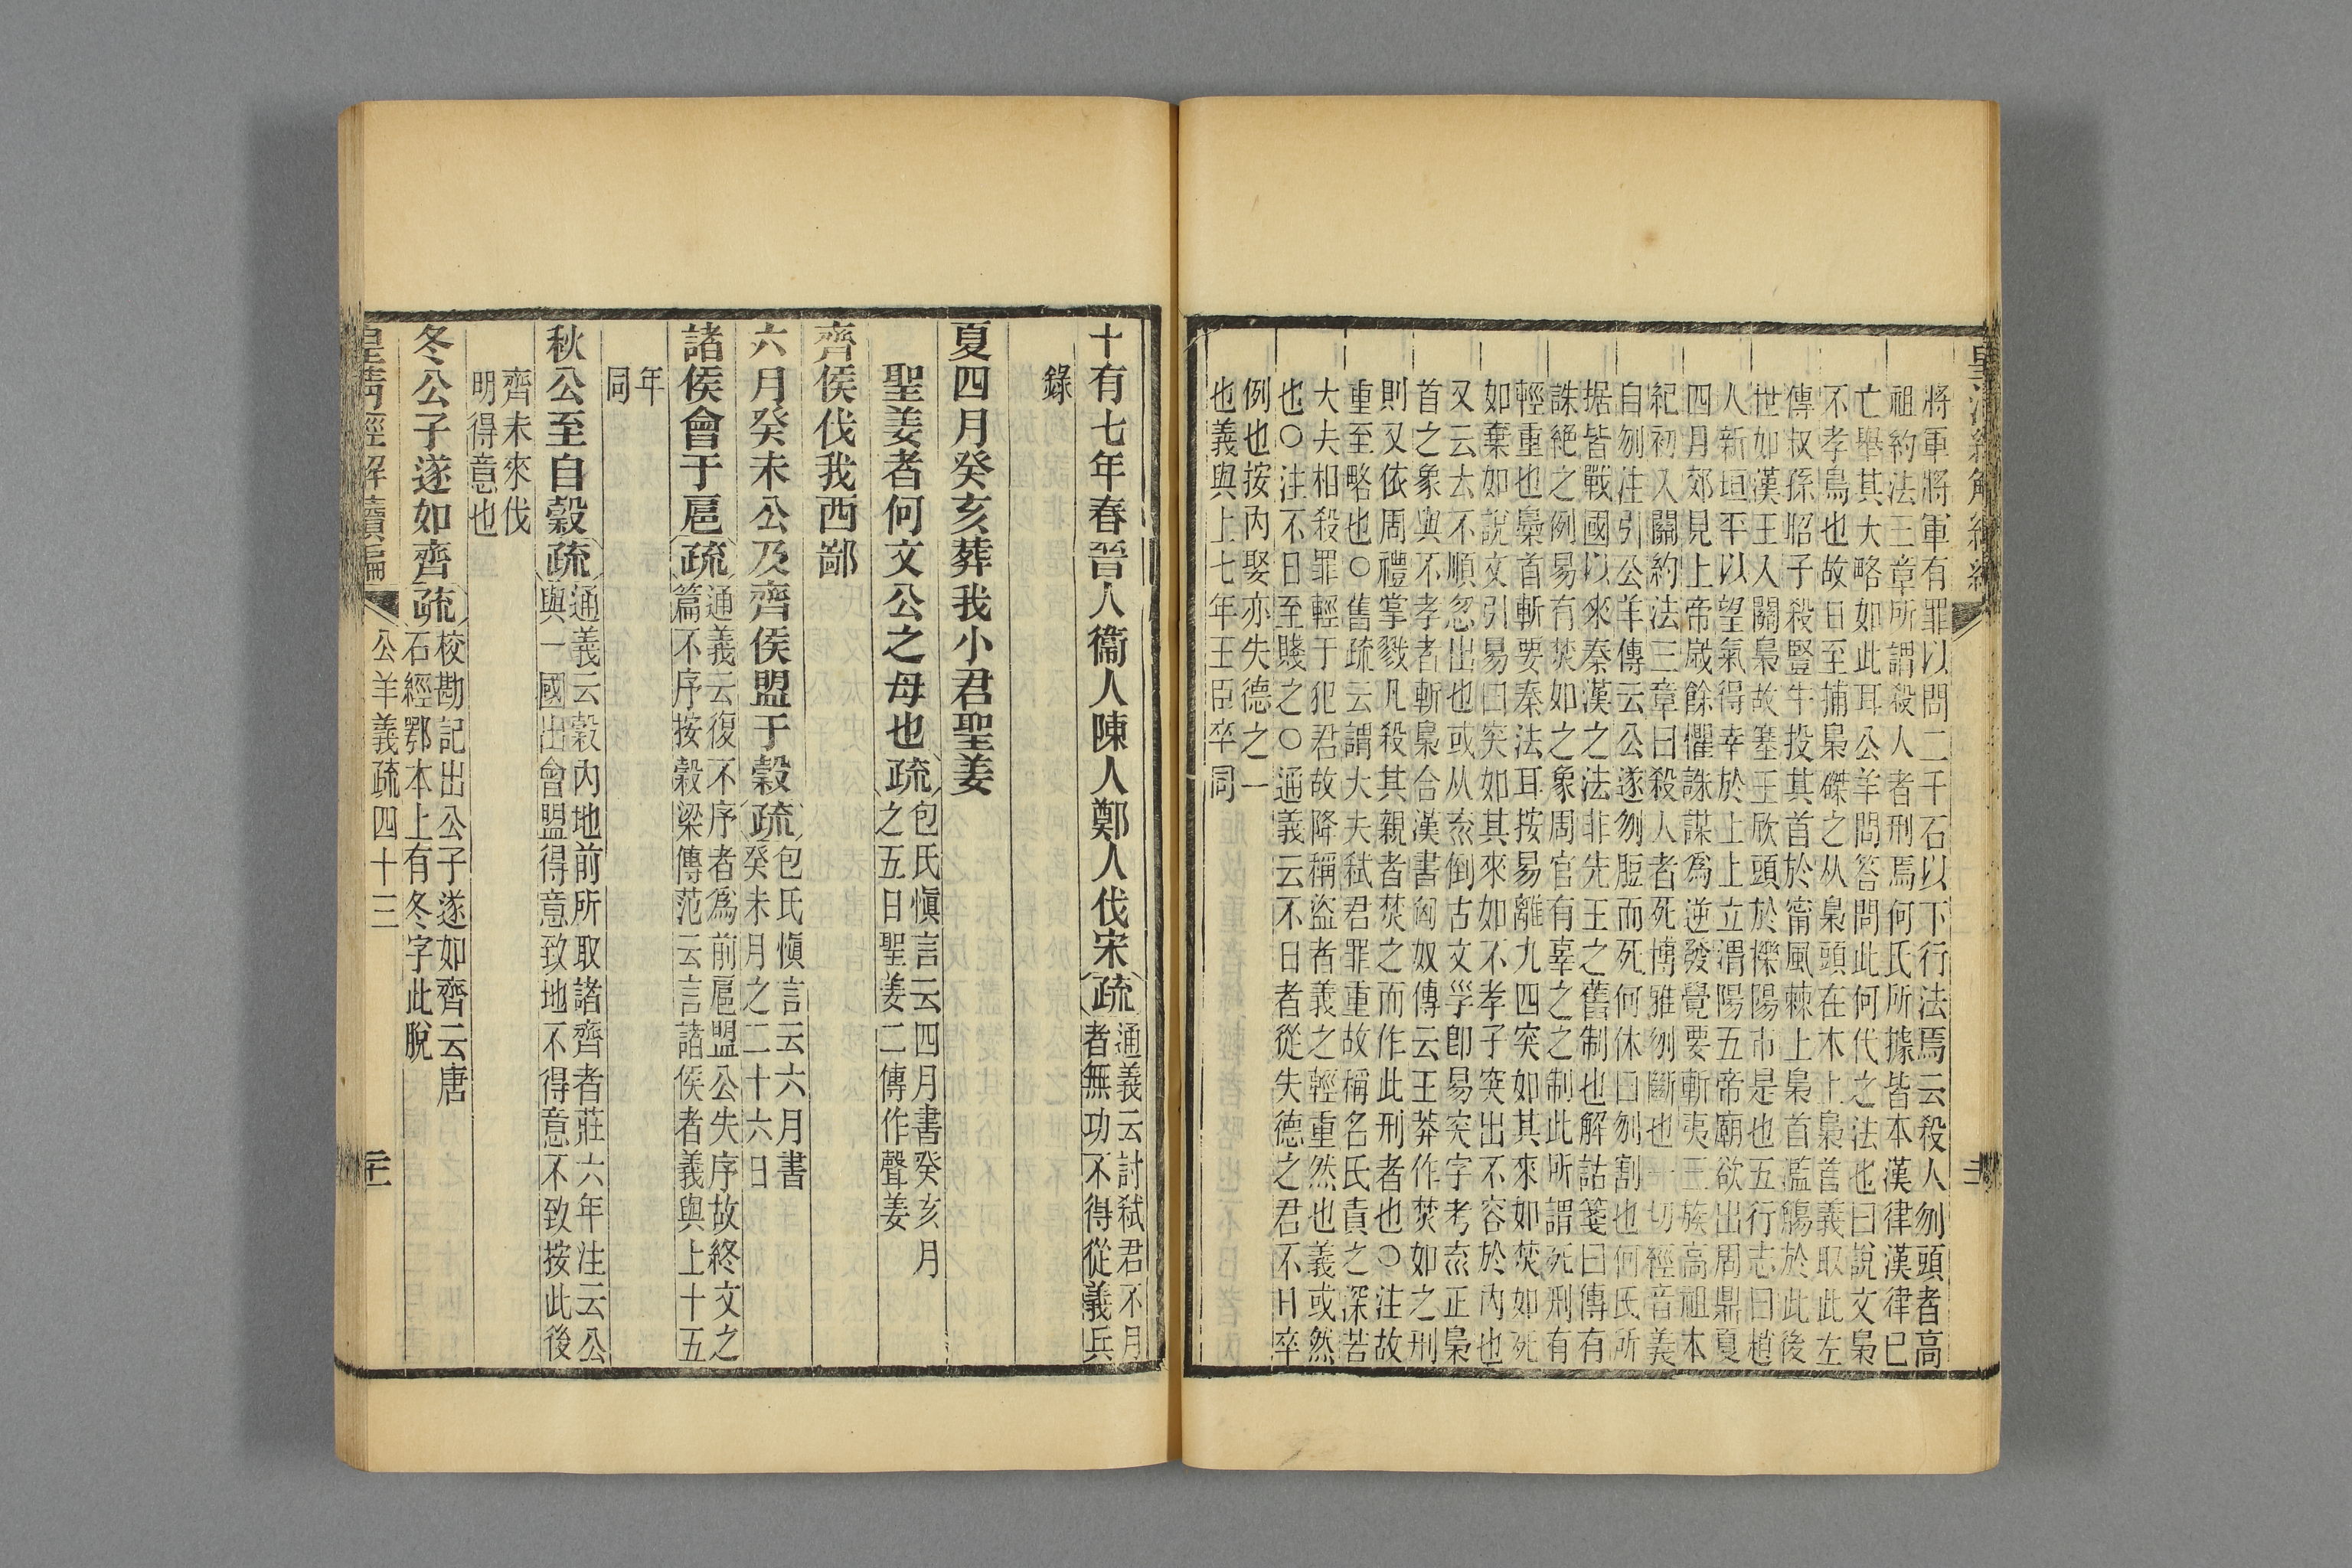 將軍將軍有罪以問二千石以下行法焉云殺人刎頭者高
祖約法三章所謂殺人者刑焉何氏所據皆本漢律漢律已
亡舉其大略如此耳公羊問答問此何代之法也曰說文梟
不孝鳥也故日至捕梟磔之从梟頭在木上梟首義取此左
傳叔孫昭子殺豎牛投其首於甯風棘上梟首濫觴於此後
世如漢王入關梟故塞王欣頭於櫟陽市是也五行志曰趙
人新垣平以望氣得幸於上上立渭陽五帝廟欲出周鼎夏
四月郊見上帝歲餘懼誅謀爲逆發覺要斬夷三族高祖本
紀初入關約法三章曰殺人者死博雅刎斷也一切經音義
自刎注引公羊傳云公遂刎脰而死何休曰刎割也何氏所
据皆戰國以來秦漢之法非先王之舊制也解詁箋曰傳有
誅絕之例易有焚如之象周官有辜之之制此所謂死刑有
輕重也梟首斬要秦法耳按易離九四突如其來如焚如死
如棄如說文引易曰突如其來如不孝子突出不容於內也
又云𠫓不順忽出也或从㐬倒古文孚卽易突字考㐬正梟
首之象與不孝者斬梟合漢書匈奴傳云王莽作焚如之刑
則又依周禮掌戮凡殺其親者焚之而作此刑者也○注故
重至略也○舊疏云謂大夫弒君罪重故稱名氏責之深若
大夫相殺罪輕于犯君故降稱盜者義之輕重然也義或然
也○注不日至賤之○通義云不日者從失德之君不日卒
例也按內娶亦失德之一
也義與上七年王臣卒同
十有七年春晉人衞人陳人鄭人伐宋疏通義云討弒君不月
者無功不得從義兵
錄
夏四月癸亥葬我小君聖姜
聖姜者何文公之母也疏包氏愼言云四月書癸亥月
之五日聖姜二傳作聲姜
齊侯伐我西鄙
六月癸未公及齊侯盟于穀疏包氏愼言云六月書
癸未月之二十六日
諸侯會于扈疏通義云復不序者爲前扈盟公失序故終文之
篇不序按穀梁傳范云言諸侯者義與上十五
年
同
秋公至自穀疏通義云穀內地前所取諸齊者莊六年注云公
與一國出會盟得意致地不得意不致按此後
齊未來伐
明得意也
冬公子遂如齊疏校勘記出公子遂如齊云唐
石經鄂本上有冬字此脫
皇淸經解續編
公羊義疏四十三